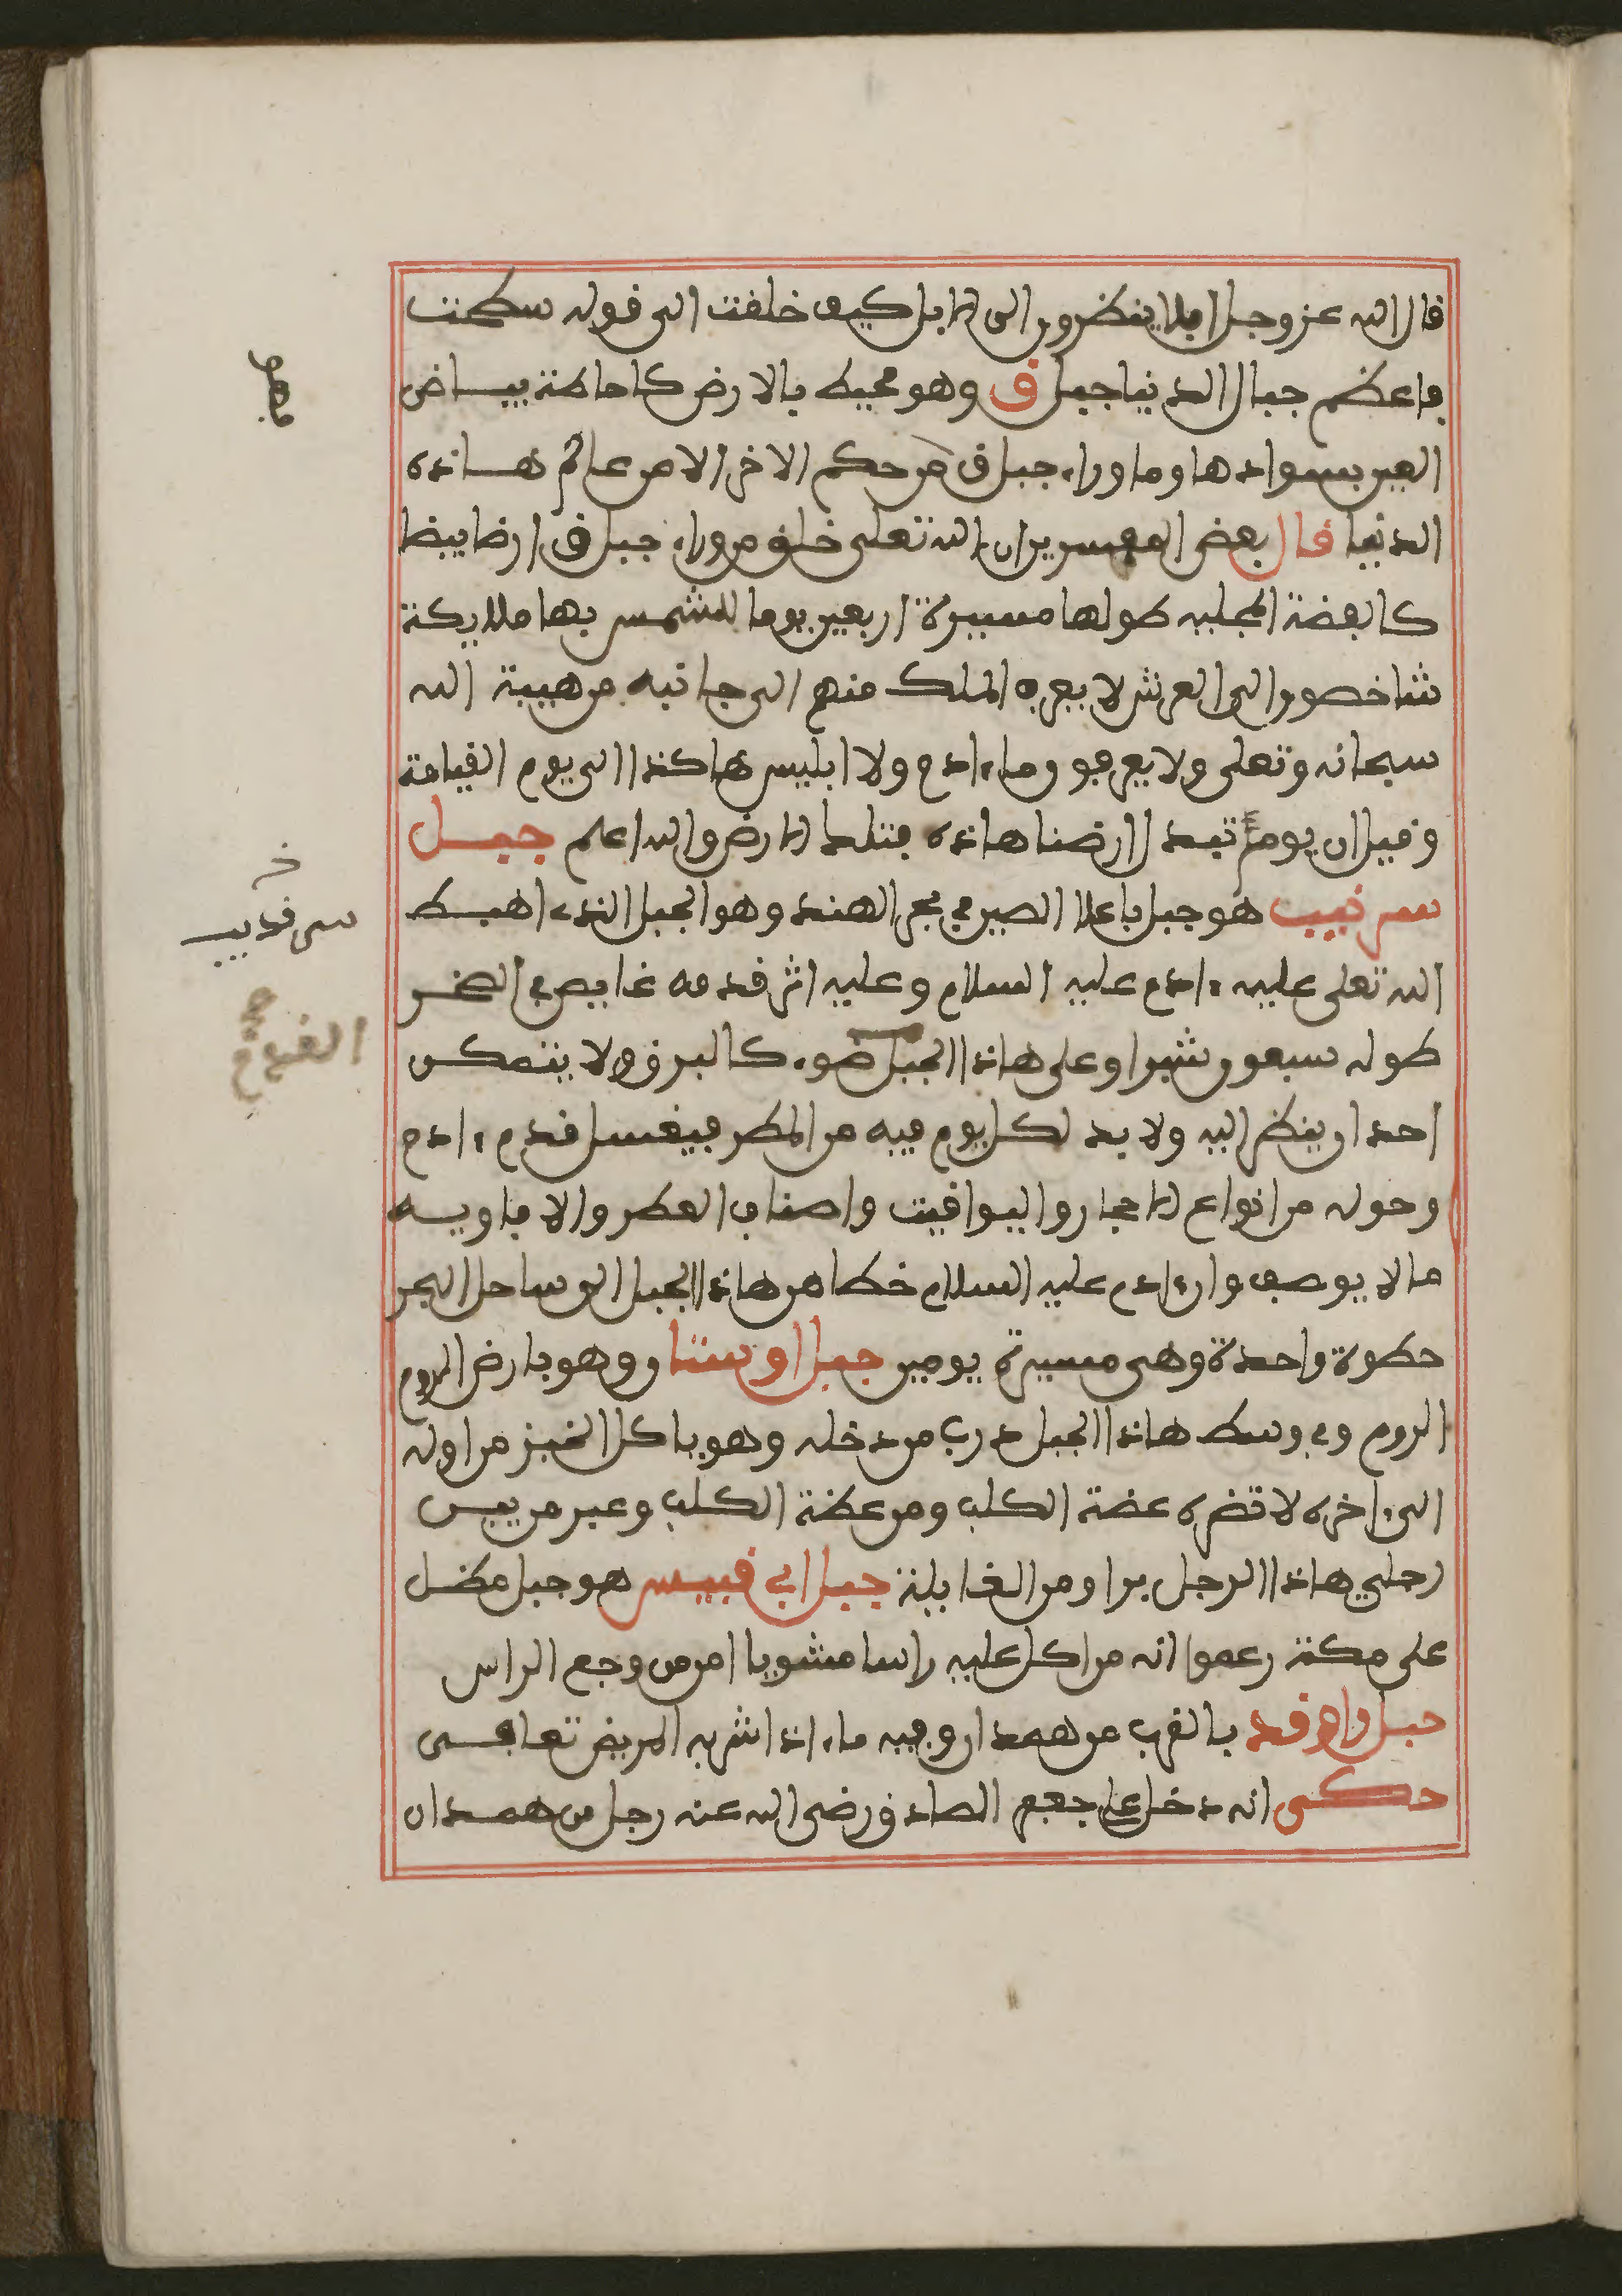 قال الله عز وجل افلا ينظرون الى الابل كيف خلقت الى قوله سطحت
فاعظم جبال الدنيا جبل ق وهو محيط بالارض كاحاطة بياض
العين بسوادها وما وراء جبل ق من حكم الاخر الا من عالم هاذه
الدنيا قال بعض المفسرين ان الله تعلى خلق من وراء جبل ق ارضا بيضا
كالفضة المجلية طولها مسيرة اربعين يوما للشمس بها ملايكة
شاخصون الى العرش لا يعرف الملك منهم الى جانبه من هيبة الله
سبحانه وتعلى ولا يعرفون وما ءادم ولا ابليس هاكذا الى يوم القيامة
وقيل ان يوم تبدل ارضنا هاذه بتلك الارض والله اعلم جبل
سرنديب هو جبل باعلا الصين في بحر الهند وهو الجبل الذي اهبط
الله تعلى عليه ءادم عليه السلام وعليه اثر قدمه غايص في الصخر
طوله سبعون شبرا وعلى هاذا الجبل ضوء كالبرق ولا يتمكن
احد ان ينظر اليه ولا بد لكل يوم فيه من المطر فيغسل قدم ءادم
وحوله من انواع الاحجار واليواقيت واصناف العطر والافاويه
ما لا يوصف وان ءادم عليه السلام خطا من هاذا الجبل الى ساحل البحر
خطوة واحدة وهي مسيرة يومين جبل اوستان وهو بارض الروم
الروم وفي وسط هاذا الجبل درب من دخله وهو ياكل الخبز من اوله
الى ءاخره لا تضره عضة الكلب ومن عظة الكلب وعبر من بين
رجلي هاذا الرجل برا ومن الغايلة جبل ابي قبيس هو جبل مطل
على مكة زعموا انه من اكل عليه راسا مشويا امن من وجع الراس
جبل واوند بالقرب من همدان وفيه ماء اذا شربه المريض تعافى
حكي انه دخل على جعفر الصادق رضي الله عنه رجل من همدان
سرنديب